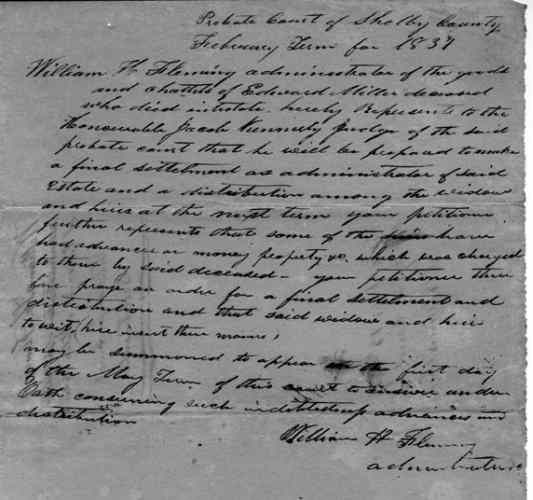 Probate Court of Shelby County
February Term for 1837
William H Fleming administrator of the goods
and chattels of Edward Miller deceased
who died intestate hereby Represents to the
Honourable Jacob Kennerly Judge of the said
probate court that he will be prepared to make
a final settlement as administrator of said
Estate and a distribution among the widow
and hiers at the next term your petitione
further represents that some of the hiers have
had advances or money property &c. which was charged
to them by said deceased - your petitioner there
fore prays an order for a final settlement and
distribution and that said widow and hiers
to wit, here insert their names,
may be summoned to appear on the first day
of the May Term of this court to answer under
Oath concerning such indebtedness advances and
distribution
William H Fleming
administrator